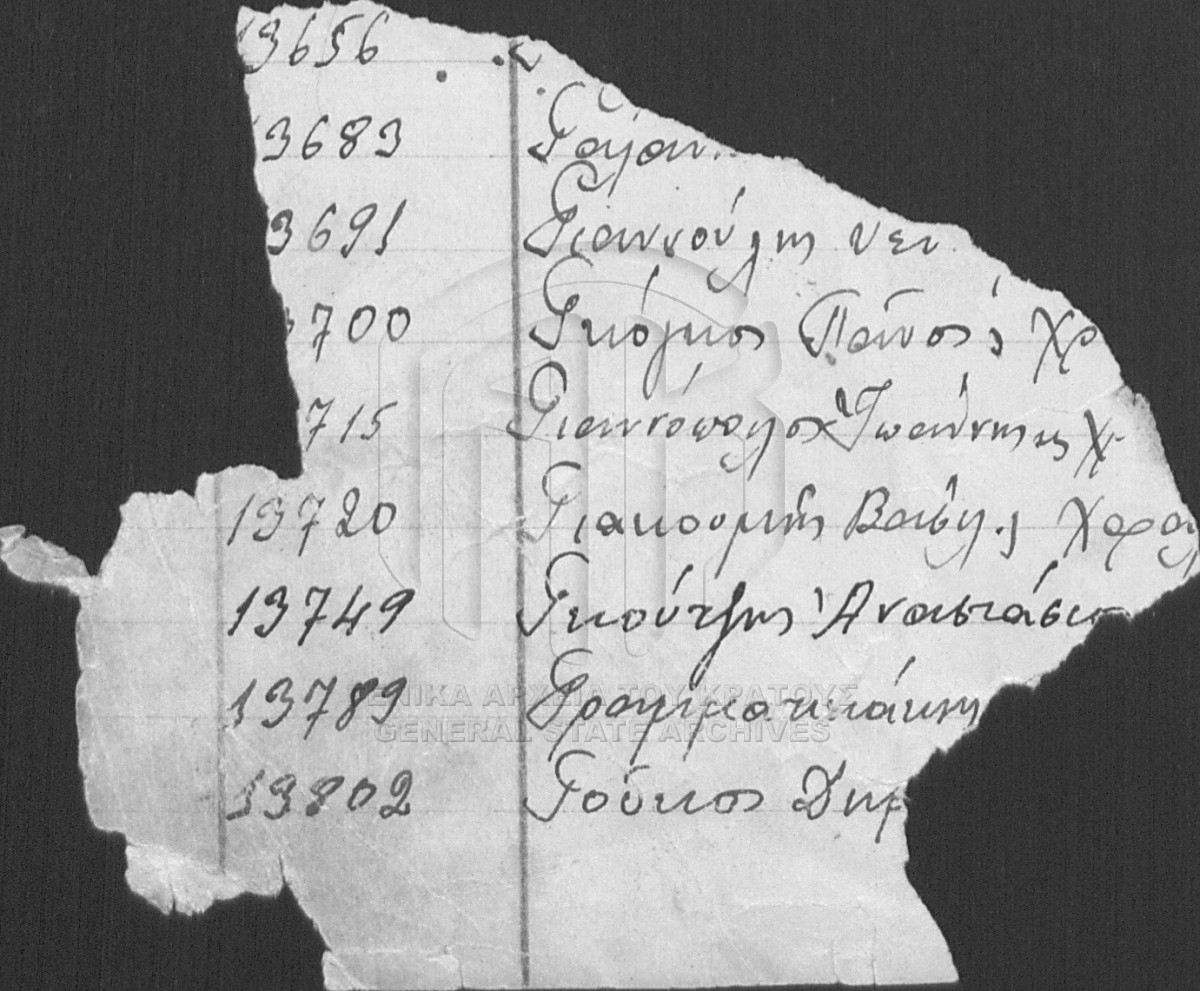 13656
3683 Γαλαν
3691 Γιαννούλης
700 Γκόγκος Πάνος Χρ
715 Γιαννόπουλος Ἰωάννης Χρ
13720 Γιακουμῆς Βασίλ. Χαραλ
13749 Γκούτζης Ἀναστάσιο
13789 Γραμματικάκης
13802 Γούκος Δημ
ΓΕΝΙΚΑ ΑΡΧΕΙΑ ΤΟΥ ΚΡΑΤΟΥΣ
GENERAL STATE ARCHIVES